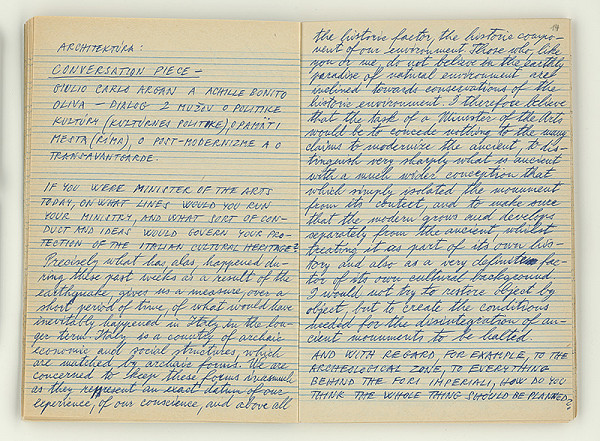 ARCHITEKTÚRA:
CONVERSATION PIECE –
GIULIO CARLO ARGAN A ACHILLE BONITO
OLIVA – DIALOG 2 MUŽOV O POLITIKE
KULTÚRY (KULTÚRNEJ POLITIKE), O PAMÄTI
MESTA (RÍMA), O POST-MODERNIZME A O
TRANSAVANTGARDE.
IF YOU WERE MINISTER OF THE ARTS
TODAY, ON WHAT LINES WOULD YOU RUN
YOUR MINISTRY, AND WHAT SORT OF CON-
DUCT AND IDEAS WOULD GOVERN YOUR PRO-
TECTION OF THE ITALIAN CULTURAL HERITAGE?
Precisely what has, alas, happened du-
ring these past weeks as a result of the
earthquake, gives us a measure, over a
short period of time, of what would have
inevitably happened in Italy in the lon-
ger term. Italy is a country of archaic
economic and social structures, which
are matched by archaic forms. We are
concerned to keep these forms inasmuch
as they represent an exact datum of our
experience, of our conscience, and above all
19
the historic factor, the historic compo-
nent of our environment. Those who, like
you or me, do not believe in the earthly
paradise of natural environment are
inclined towards conservations of the
historic environment. I therefore believe
that the task of a Minister of the Arts
would be to concede nothing to the many
claims to modernize the ancient, to dis-
tinguish very sharply what is ancient
with a much wider conception that
which simply isolated the monument
from its context, and to make sure
that the modern grows and develops
separately from the ancient, whilst
treating it as part of its own his-
tory and also as a very definite fac-
tor of its own cultural background.
I would not try to restore object by
object, but to create the conditions
needed for the disintegration of an-
cient monuments to be halted.
AND WITH REGARD, FOR EXAMPLE, TO THE
ARCHEOLOGICAL ZONE, TO EVERYTHING
BEHIND THE FORI IMPERIALI, HOW DO YOU
THINK THE WHOLE THING SHOULD BE PLANNED?